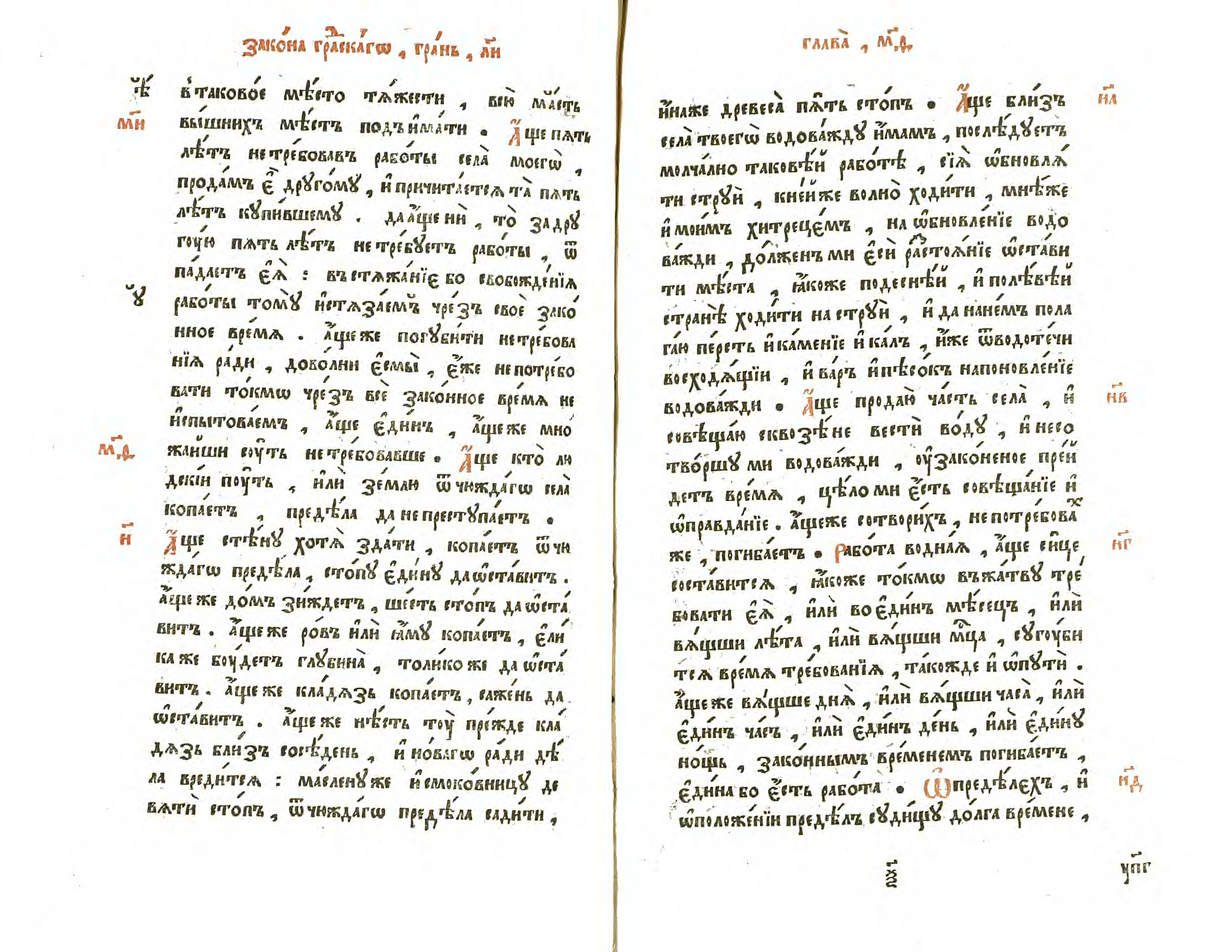 Зако́на гра́дскагѡ , гра́нь , л҃и
в̾ таково́е мѣ́сто тѧ́жести , всю̀ ма́сть
м҃и
вы́шнихъ мѣ́стъ подъима́ти . А҆́ще пѧ́ть
лѣ́тъ нетре́бовавъ рабо́ты села̀ моегѡ̀ ,
прода́мъ є҆̀ друго́му , и҆ причита́етсѧ та̀ пѧ́ть
лѣ́тъ купи́вшему . да а҆́ще нѝ , то̀ за дру
гоую пѧ́ть лѣ́тъ нетре́буетъ рабо́ты , ѿ
па́даетъ є҆ѧ̀ : въ стѧжа́нїе бо свобожде́нїѧ
рабо́ты тому̀ и҆стѧза́емꙋ чре́зъ своѐ зако́
нное вре́мѧ . а҆́ще же погꙋби́ти нетре́бова
нїѧ ра́ди , дово́лни є҆смы̀ , є҆́же непотре́бо
вати то́кмѡ чре́зъ всѐ зако́нное вре́мѧ не
и҆спытоваемъ , а҆́ще є҆ди́нъ , а҆́ще же мно́
м҃д
жайши соу́ть нетре́бовавше . А҆́ще кто̀ лю
дскі́и поу́ть , и҆лѝ зе́млю ѿ чюжда́гѡ села̀
копа́етъ , предѣ́ла да не престꙋпа́етъ .
н҃
А҆́ще стѣ́нꙋ хотѧ̀ зда́ти , копа́етъ ѿ чю
жда́гѡ предѣ́ла , стопꙋ̀ є҆ди́нꙋ да ѡ҆ста́витъ .
а҆́ще же до́мъ зи́ждетъ , ше́сть сто́пъ да ѡ҆ста́
витъ . а҆́ще же ро́въ и҆лѝ ꙗ҆́мꙋ копа́етъ , є҆ли́
ка же боу́детъ глꙋбина̀ , толи́ко же да ѡ҆ста́
витъ . а҆́ще же кла́дѧзь копа́етъ , саже́нь да
ѡ҆ста́витъ . а҆́ще же нѣ́сть тоу̀ пре́жде кла́
дѧзь бли́зъ сосѣ́день , и҆ но́вагѡ ра́ди дѣ́
ла вреди́тсѧ : ма́сленꙋ же и҆ смоко́вницꙋ де
вѧтѝ сто́пъ , ѿ чюжда́гѡ предѣ́ла сади́ти ,
глава̀ , м҃д
и҆́на же древеса̀ пѧ́ть сто́пъ . А҆́ще бли́зъ
н҃а
села̀ твоегѡ̀ водова́ждꙋ и҆́мамъ , послѣ́дꙋетъ
молча́лно таковѣ́й рабо́тѣ , сїѧ̀ ѡ҆бновлѧ́
ти стрꙋѝ , к не́йже волно̀ ходи́ти , мнѣ́ же
и҆ мои́мъ хитрецє́мъ , на ѡ҆бновле́нїе водо
ва́жди , до́лженъ ми є҆сѝ разстоѧ́нїе ѡ҆ста́ви
ти мѣ́ста , ꙗ҆́коже по деснѣ́й , и҆ по лѣ́вѣй
странѣ̀ ходи́ти на стрꙋѝ , и҆ да на не́мъ пола
га́ю пе́рсть и҆ ка́менїе и҆ ка́лъ , и҆́же ѿ водоте́чи
восходѧ́щїи , и҆ ва́ръ и҆ пѣсо́къ на поновле́нїе
водова́жди . А҆́ще продаю̀ ча́сть села̀ , и҆
н҃в
совѣща́ю сквозѣ́ не вестѝ во́дꙋ , и҆ несо
тво́ршꙋ ми водова́жди , оу҆зако́неное пре́й
детъ вре́мѧ , цѣ́ло ми є҆́сть совѣща́нїе и҆
ѡ҆правда́нїе . а҆́ще же сотвори́хъ , не потре́бовахъ
же , погиба́етъ . Рабо́та во́днаѧ , а҆́ще си́це
н҃г
соста́витсѧ , ꙗ҆́коже то́кмѡ въ жа́твꙋ тре́
бовати є҆ѧ̀ , и҆лѝ во є҆ди́нъ мѣ́сецъ , и҆лѝ
вѧ́щши лѣ́та , и҆лѝ вѧ́щши мц҃а , сꙋгоу́би
тсѧ вре́мѧ тре́бованїѧ , та́кожде и҆ ѡ҆ пꙋтѝ .
а҆́ще же вѧ́щше днѧ̀ , и҆лѝ вѧ́щши часа̀ , и҆лѝ
є҆ди́нъ ча́съ , и҆лѝ є҆ди́нъ де́нь , и҆лѝ є҆ди́нꙋ
но́щь , зако́ннымъ вре́менемъ погиба́етъ ,
є҆ди́на бо є҆́сть рабо́та . Ѡ҆ предѣ́лехъ , и҆
н҃д
ѡ҆ положе́нїи предѣ́лъ сꙋди́щꙋ до́лга вре́мене ,
уп҃г